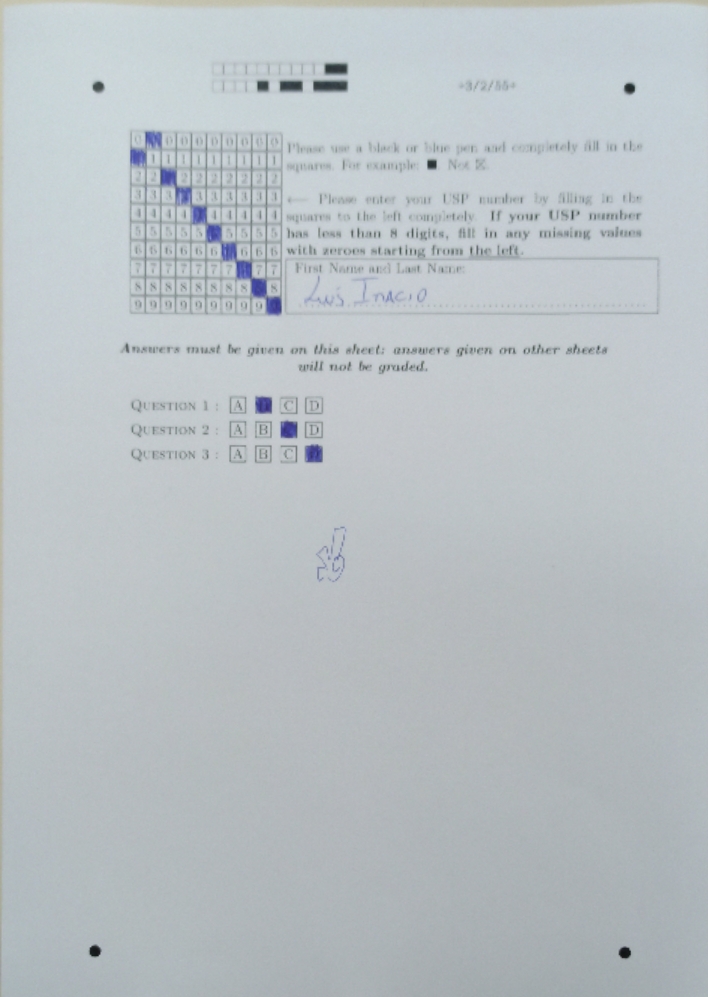 +3/2/55+
0 0 0 0 0 0 0 0 0
1 1 1 1 1 1 1 1 1
2 2 2 2 2 2 2 2 2
3 3 3 3 3 3 3 3 3
4 4 4 4 4 4 4 4 4
5 5 5 5 5 5 5 5 5
6 6 6 6 6 6 6 6 6
7 7 7 7 7 7 7 7 7
8 8 8 8 8 8 8 8 8
9 9 9 9 9 9 9 9 9
Please use a black or blue pen and completely fill in the
squares. For example: ■. Not ☒.
⟵ Please enter your USP number by filling in the
squares to the left completely. If your USP number
has less than 8 digits, fill in any missing values
with zeroes starting from the left.
First Name and Last Name:
Luis Inacio
Answers must be given on this sheet: answers given on other sheets
will not be graded.
QUESTION 1 : A C D
QUESTION 2 : A B D
QUESTION 3 : A B C